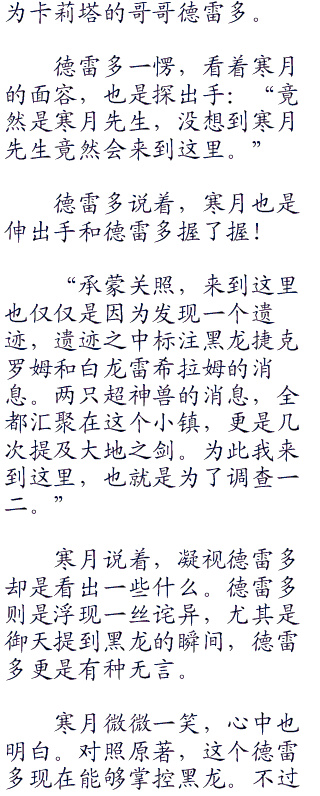 为卡莉塔的哥哥德雷多。
德雷多一愣，看着寒月
的面容，也是探出手：“竟
然是寒月先生，没想到寒月
先生竟然会来到这里。”
德雷多说着，寒月也是
伸出手和德雷多握了握！
“承蒙关照，来到这里
也仅仅是因为发现一个遗
迹，遗迹之中标注黑龙捷克
罗姆和白龙雷希拉姆的消
息。两只超神兽的消息，全
都汇聚在这个小镇，更是几
次提及大地之剑。为此我来
到这里，也就是为了调查一
二。”
寒月说着，凝视德雷多
却是看出一些什么。德雷多
则是浮现一丝诧异，尤其是
御天提到黑龙的瞬间，德雷
多更是有种无言。
寒月微微一笑，心中也
明白。对照原著，这个德雷
多现在能够掌控黑龙。不过